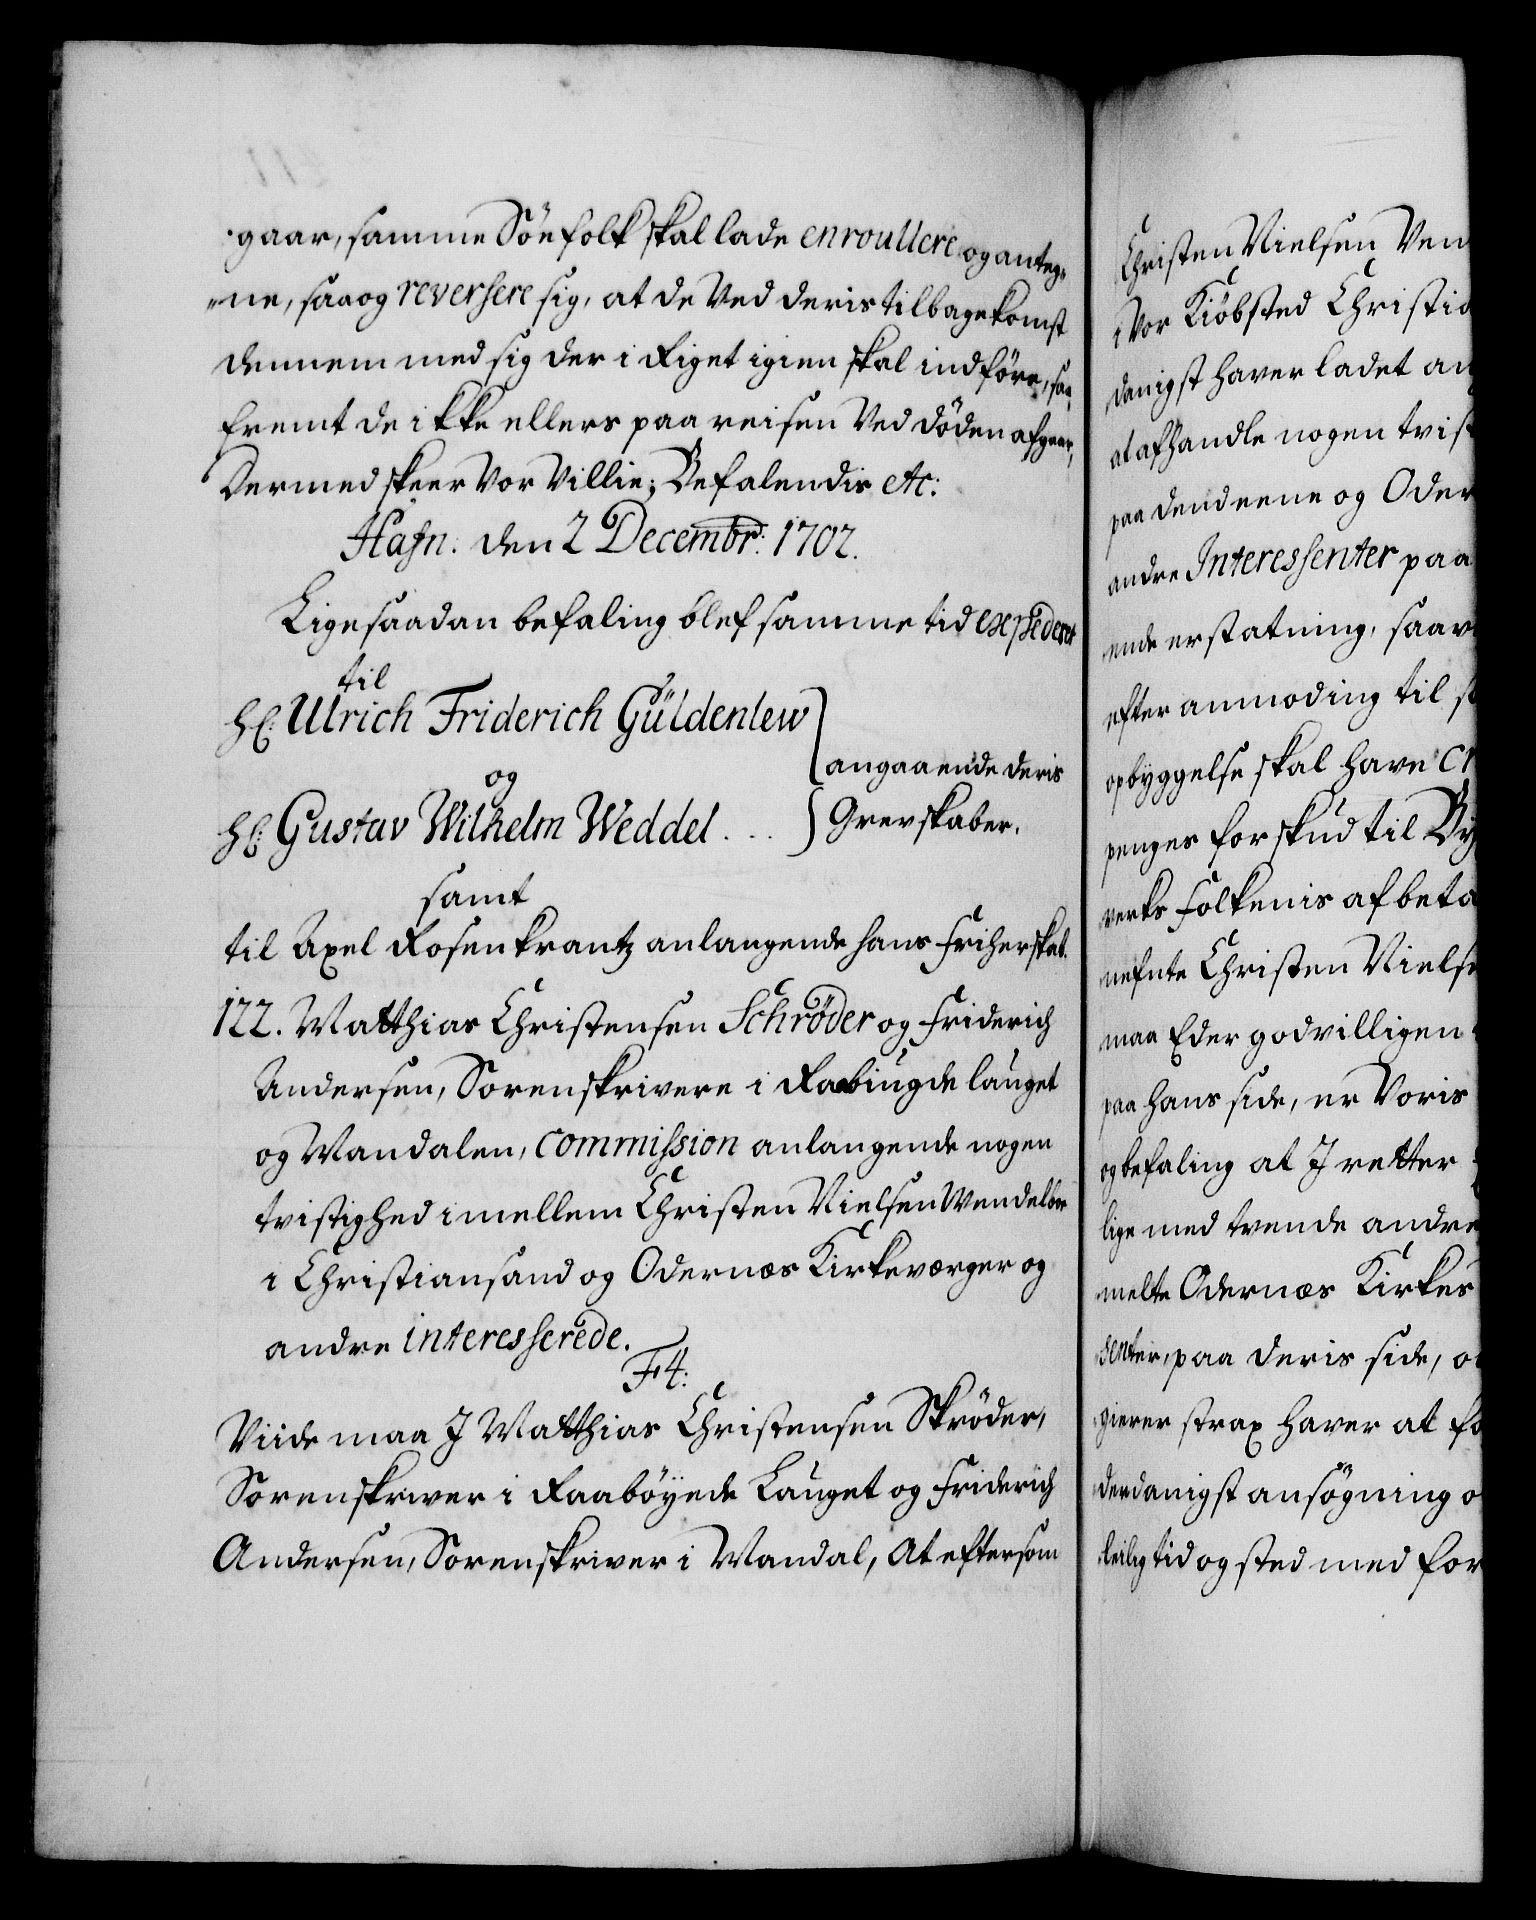 gaar, samme Söefolk skal lade enroullere og anteg-
-ne, saa og reversere sig, at de Ved deris tilbagekomst
dennem med sig der i Riget igien skal indföre, saa-
fremt de ikke ellers paa reisen Ved döden afgaar,
Dermed skeer Vor Villie; Befalendis etc:
Hafn. den 2 Decembr: 1702.
Ligesaadan befaling blef samme tid expederet
til
Hl: Ulrich Friderich Güldenlew
og
angaaende deris
Hl: Gustav Wilhelm Weddel . . .
Grevskaber.
samt
til Axel Rosenkrantz anlangende hans Friherskab.
122. Matthias Christensen Schröder og Friderich
Andersen, Sorenskrivere i Raabiugdelauget
og Mandalen, commission anlangende nogen
tvistighed imellem Christen Nielsen Wendelboe
i Christiansand og Odernæs Kirkeværger og
andre interesserede.
F4:
Viide maa J Matthias Christensen Skröder,
Sorenskriver i Raabøyde Lauget og Friderich
Andersen, Sorenskriver i Mandal, At eftersom
Christen Nielsen Ven
i Vor Kiöbsted Christia
danigst haver ladet an
at afhandle nogen tvist
paa dend eene og Oder
andre Interessenter paa
ende erstatning, saav
efter anmoding til
opbyggelse skal have
penges forskud til By
verks Folkenis afbeta
nefnte Christen Nielse
maa Eder godvilligen
paa hans side, er Voris
og befaling at J retter
lige med tvende andre
melte Odernæs Kirkes
senter, paa deris side,
gierer strax haver at fo
derdanigst ansøgning o
leilig tid og sted med for